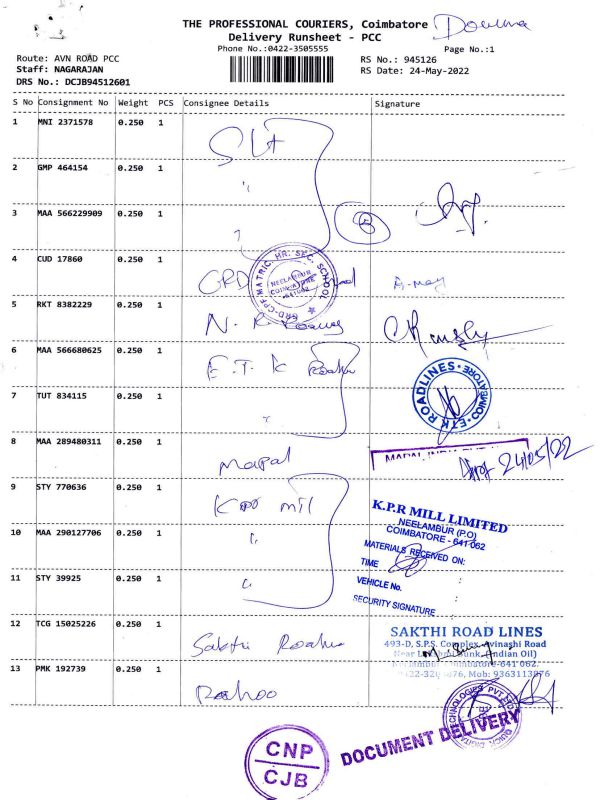 THE PROFESSIONAL COURIERS, Coimbatore
Delivery Runsheet - PCC
Phone No.:0422-3505555
Page No.:1
Route: AVN ROAD PCC
Staff: NAGARAJAN
DRS No.: DCJB94512601
RS No.: 945126
RS Date: 24-May-2022
S No Consignment No Weight PCS Consignee Details Signature
1 MNI 2371578 0.250 1
2 GMP 464154 0.250 1
3 MAA 566229909 0.250 1
4 CUD 17860 0.250 1 GRD
GRD-CPF MATRIC HR. SEC. SCHOOL
NEELAMBUR
COIMBATORE
641062
5 RKT 8382229 0.250 1
6 MAA 566680625 0.250 1 E.T.K
ETK ROADLINES COIMBATORE
7 TUT 834115 0.250 1
8 MAA 289480311 0.250 1 Mapal
24/05/22
9 STY 770636 0.250 1 mill
K.P.R MILL LIMITED
NEELAMBUR (P.O)
COIMBATORE - 641 062
10 MAA 290127706 0.250 1
MATERIALS RECEIVED ON:
TIME :
11 STY 39925 0.250 1
VEHICLE No. :
SECURITY SIGNATURE
12 TCG 15025226 0.250 1 Sakthi
SAKTHI ROAD LINES
493-D, S.P.S. Complex, Avinashi Road
(Indian Oil)
Mob: 9363113876
13 PMK 192739 0.250 1
CNP
CJB
DOCUMENT DELIVERY